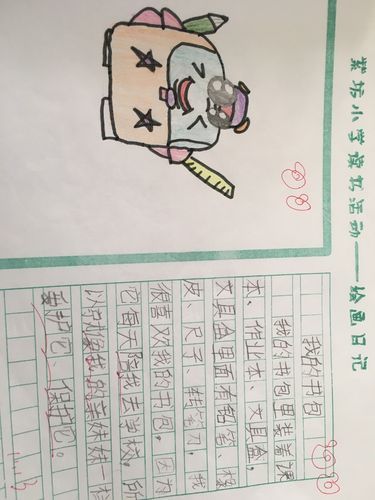 坊小学读书活动——绘画日记
我的书包
我的书包里装着课
本、作业本、文具盒,
文具盒里面有铅笔、橡
皮、尺子、转笔刀。我
很喜欢我的书包,因为
它每天陪我去学校,所
以对我的亲妹妹一样
爱护它、保护它。